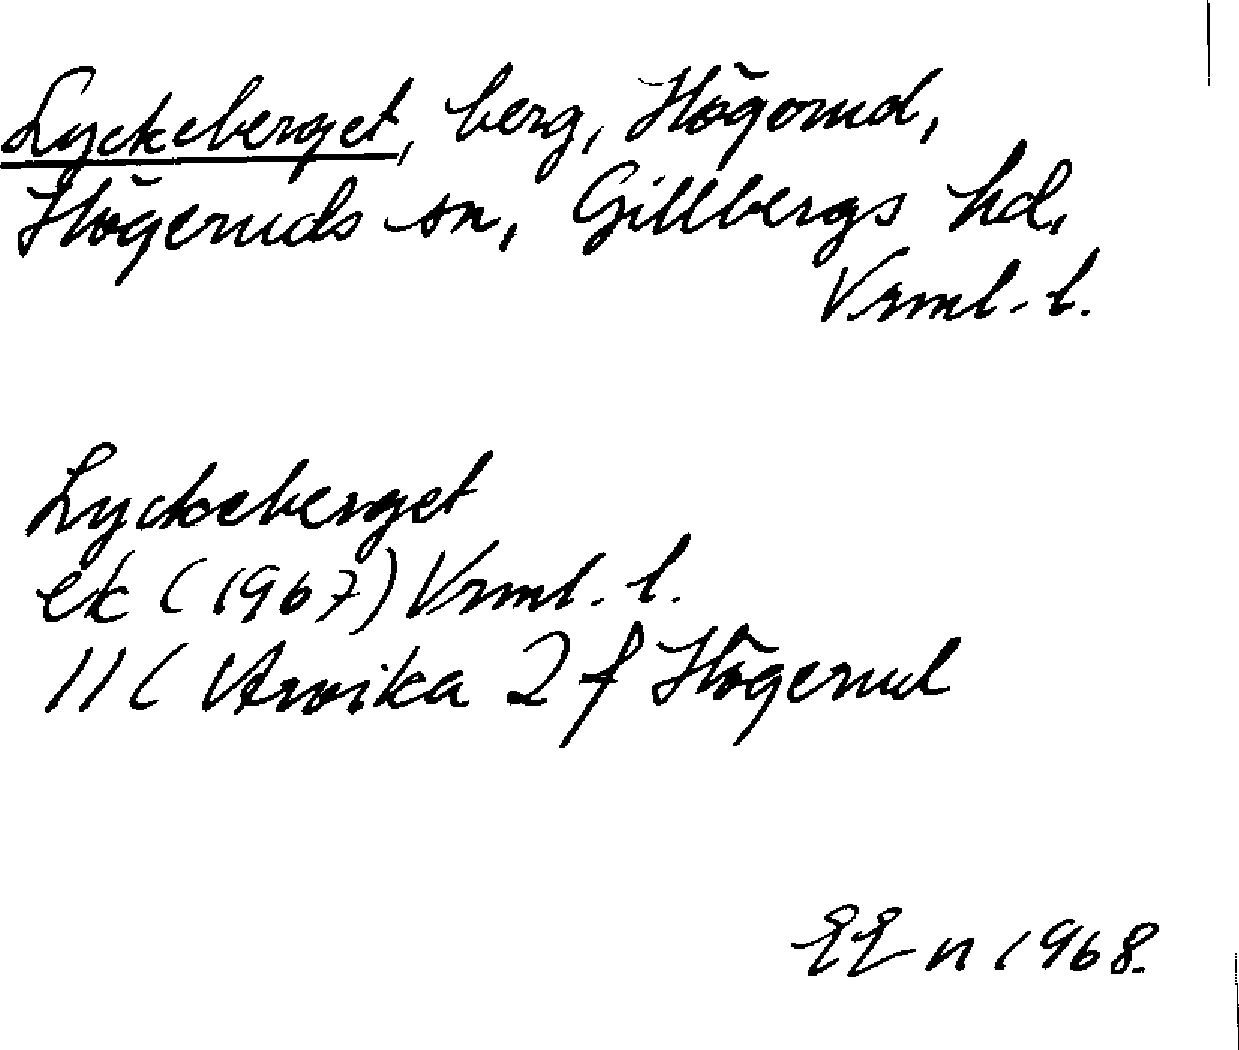 Lyckeberget, berg, Högerud,
Högeruds sn, Gillbergs hd,
Vrml. l.
Lyckeberget
ek (1967) Vrml. l.
11C Arvika 2 f Högerud
EEn 1968.